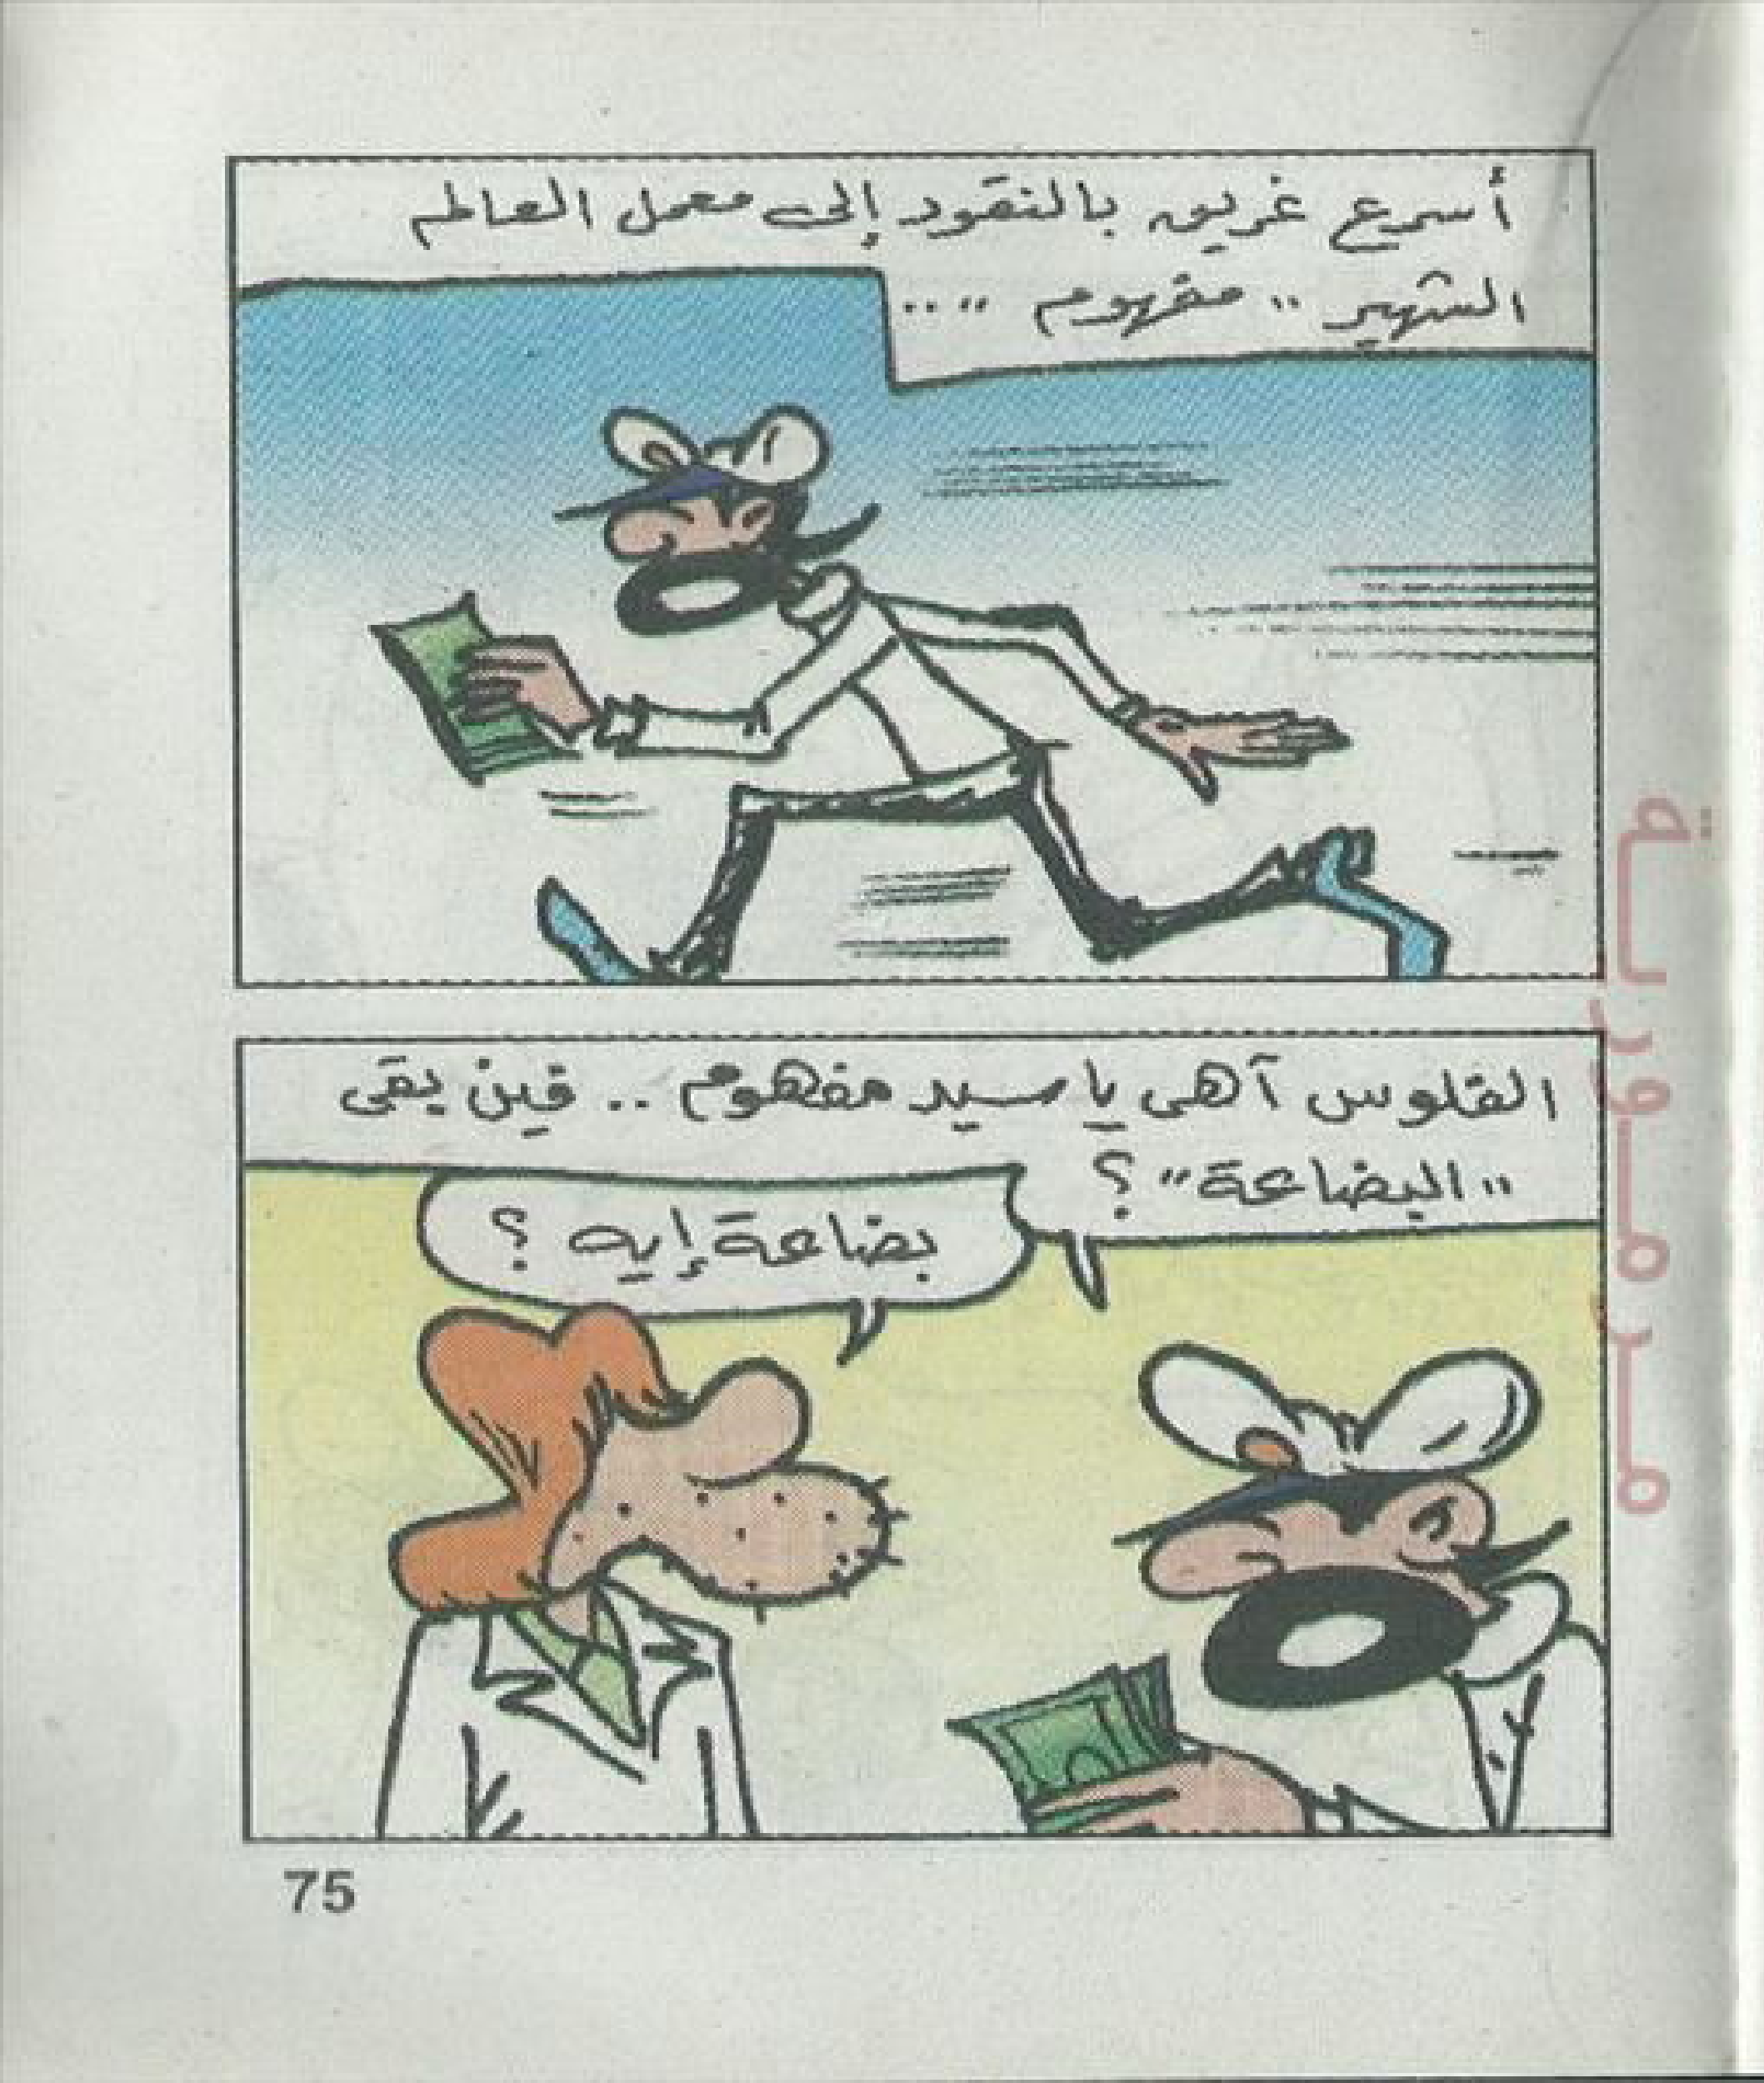 أسرع غريب بالنقود إلى معمل العالم
الشهير "مفهوم" ..
الفلوس آهى يا سيد مفهوم .. فين بقى
"البضاعة" ؟
بضاعة إيه ؟
75